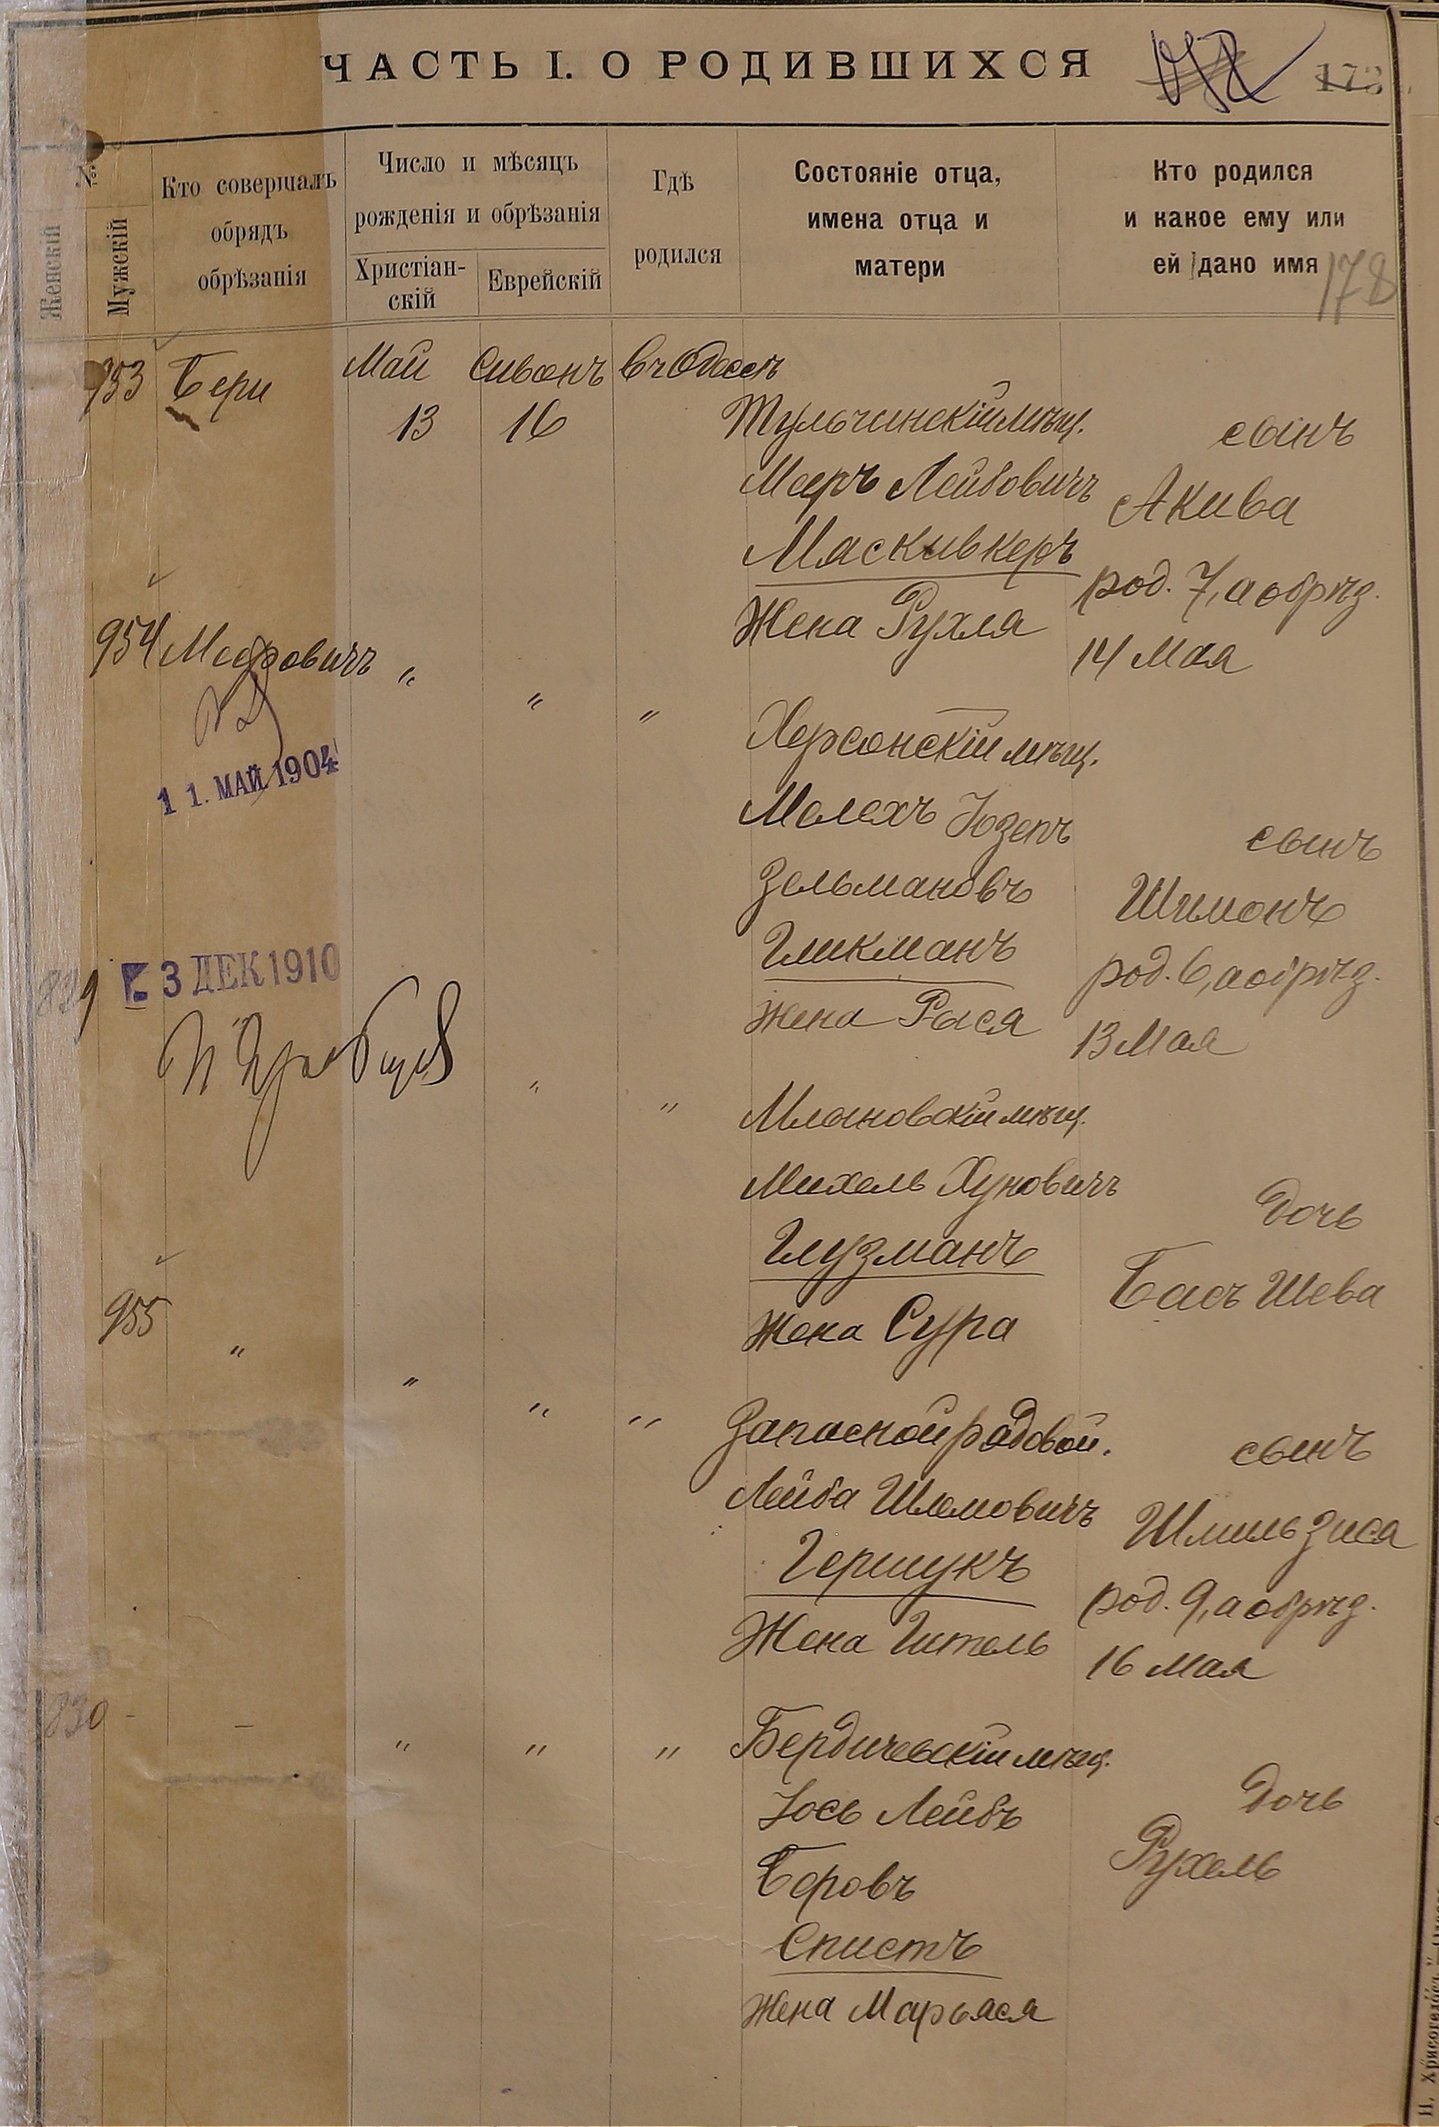 ЧАСТЬ I. О РОДИВШИХСЯ
173
№
Женскій
Мужскій
Кто совершалъ
обрядъ
обрѣзанія
Число и мѣсяцъ
рожденія и обрѣзанія
Христіан-
скій
Еврейскій
Гдѣ
родился
Состояніе отца,
имена отца и
матери
Кто родился
и какое ему или
ей дано имя
178
953 Бери
Май
13
Сиванъ
16
въ Одессѣ
Тульчинскій мѣщ.
Мееръ Лейбовичъ
Москивкеръ
Жена Рухля
сынъ
Акива
род. 7, а обрѣз.
14 Мая
954 Мееровичъ " " "
11. МАЙ 1904
Херсонскій мѣщ.
Мелехъ Юзепъ
Зельмановъ
Гликманъ
жена Рася
сынъ
Шимонъ
род. 6, а обрѣз.
13 Мая
829
3 ДЕК 1910
" "
Млыновскій мѣщ.
Михель Хуновичъ
Глузманъ
жена Сура
дочь
Басъ Шева
955 " " " "
Запасной рядовой.
Лейба Шлемовичъ
Гершукъ
Жена Гитель
сынъ
Шмиль Зиса
род. 9, а обрѣз.
16 Мая
830 - – " " "
Бердичевскій мѣщ.
Іось Лейбъ
Беровъ
Спистъ
жена Марьяся
дочь
Рухель